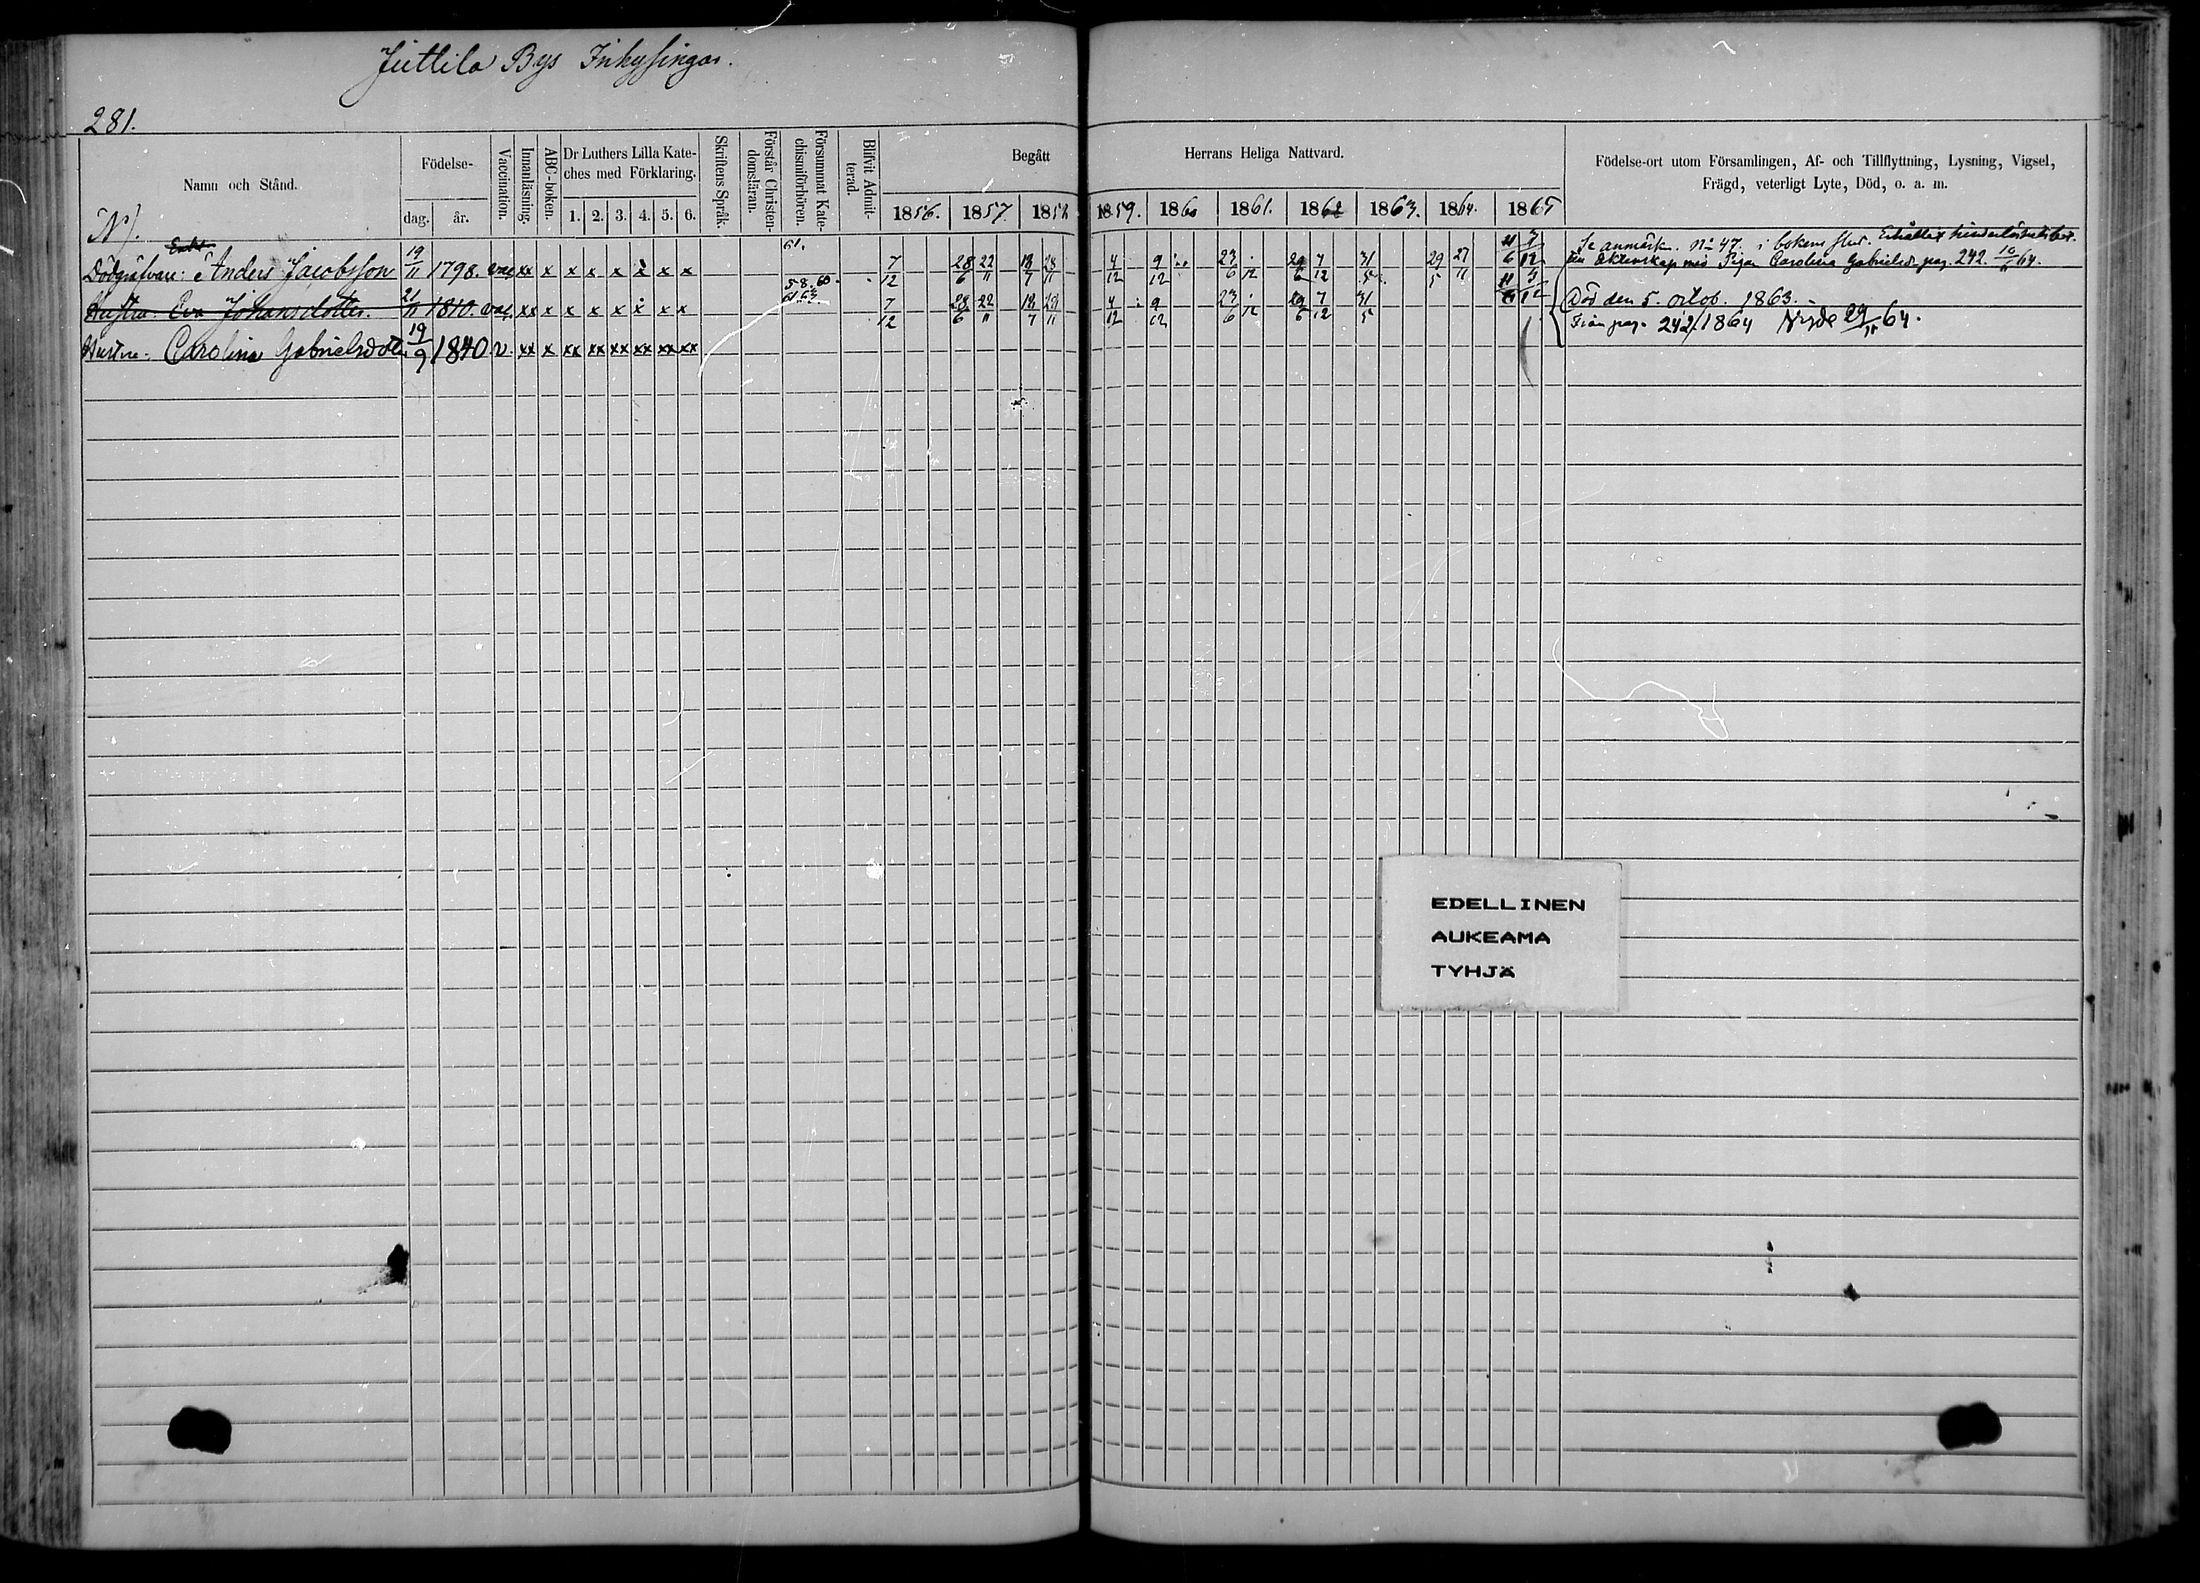 Juttila Bys Inhysingar.
281.
Namn och Stånd.
Födelse-
dag. år.
Vaccination.
Innanläsning.
ABC-boken.
Dr Luthers Lilla Kate-
ches med Förklaring.
1. 2. 3. 4. 5. 6.
Skriftens Språk.
Förstår Christen-
domsläran.
Försummat Kate-
chismiförhören.
Blifvit Admit-
terad.
Begått Herrans Heliga Nattvard.
1856. 1857. 1858 1859. 1860 1861. 1862 1863. 1864. 1865
Födelse-ort utom Församlingen, Af- och Tillflyttning, Lysning, Vigsel,
Frägd, veterligt Lyte, Död, o. a. m.
N).
Enkl.
61.
Dödgräfvare: Anders Jacobsson 19/11 1798. vac xx x x x x x x x 7/12 28/6 22/11 18/7 28/11 4/12 9/12 23/6 29/6 7/12 31/5 29/5 27/11 11/6 3/12 Se anmärk. No 47. i bokens slut. Erhållet hinderlöshetsbet.
till Äktenskap med Pigan Carolina Gabrielsdr pag. 242. 10/11 64.
58. 60.
61. 63
Hustru. Eva Johansdotter. 21/11 1810. vac. xx x x x x x x x 7/12 28/6 22/11 18/7 28/11 4/12 9/12 23/6 29/6 7/12 31/5 Död den 5. octob. 1863.
Hustru. Carolina Gabrielsdotter 19/9 1840 v. xx x xx xx xx xx xx xx Från pag. 242/1864 Vigde 29/11 64.
EDELLINEN
AUKEAMA
TYHJÄ